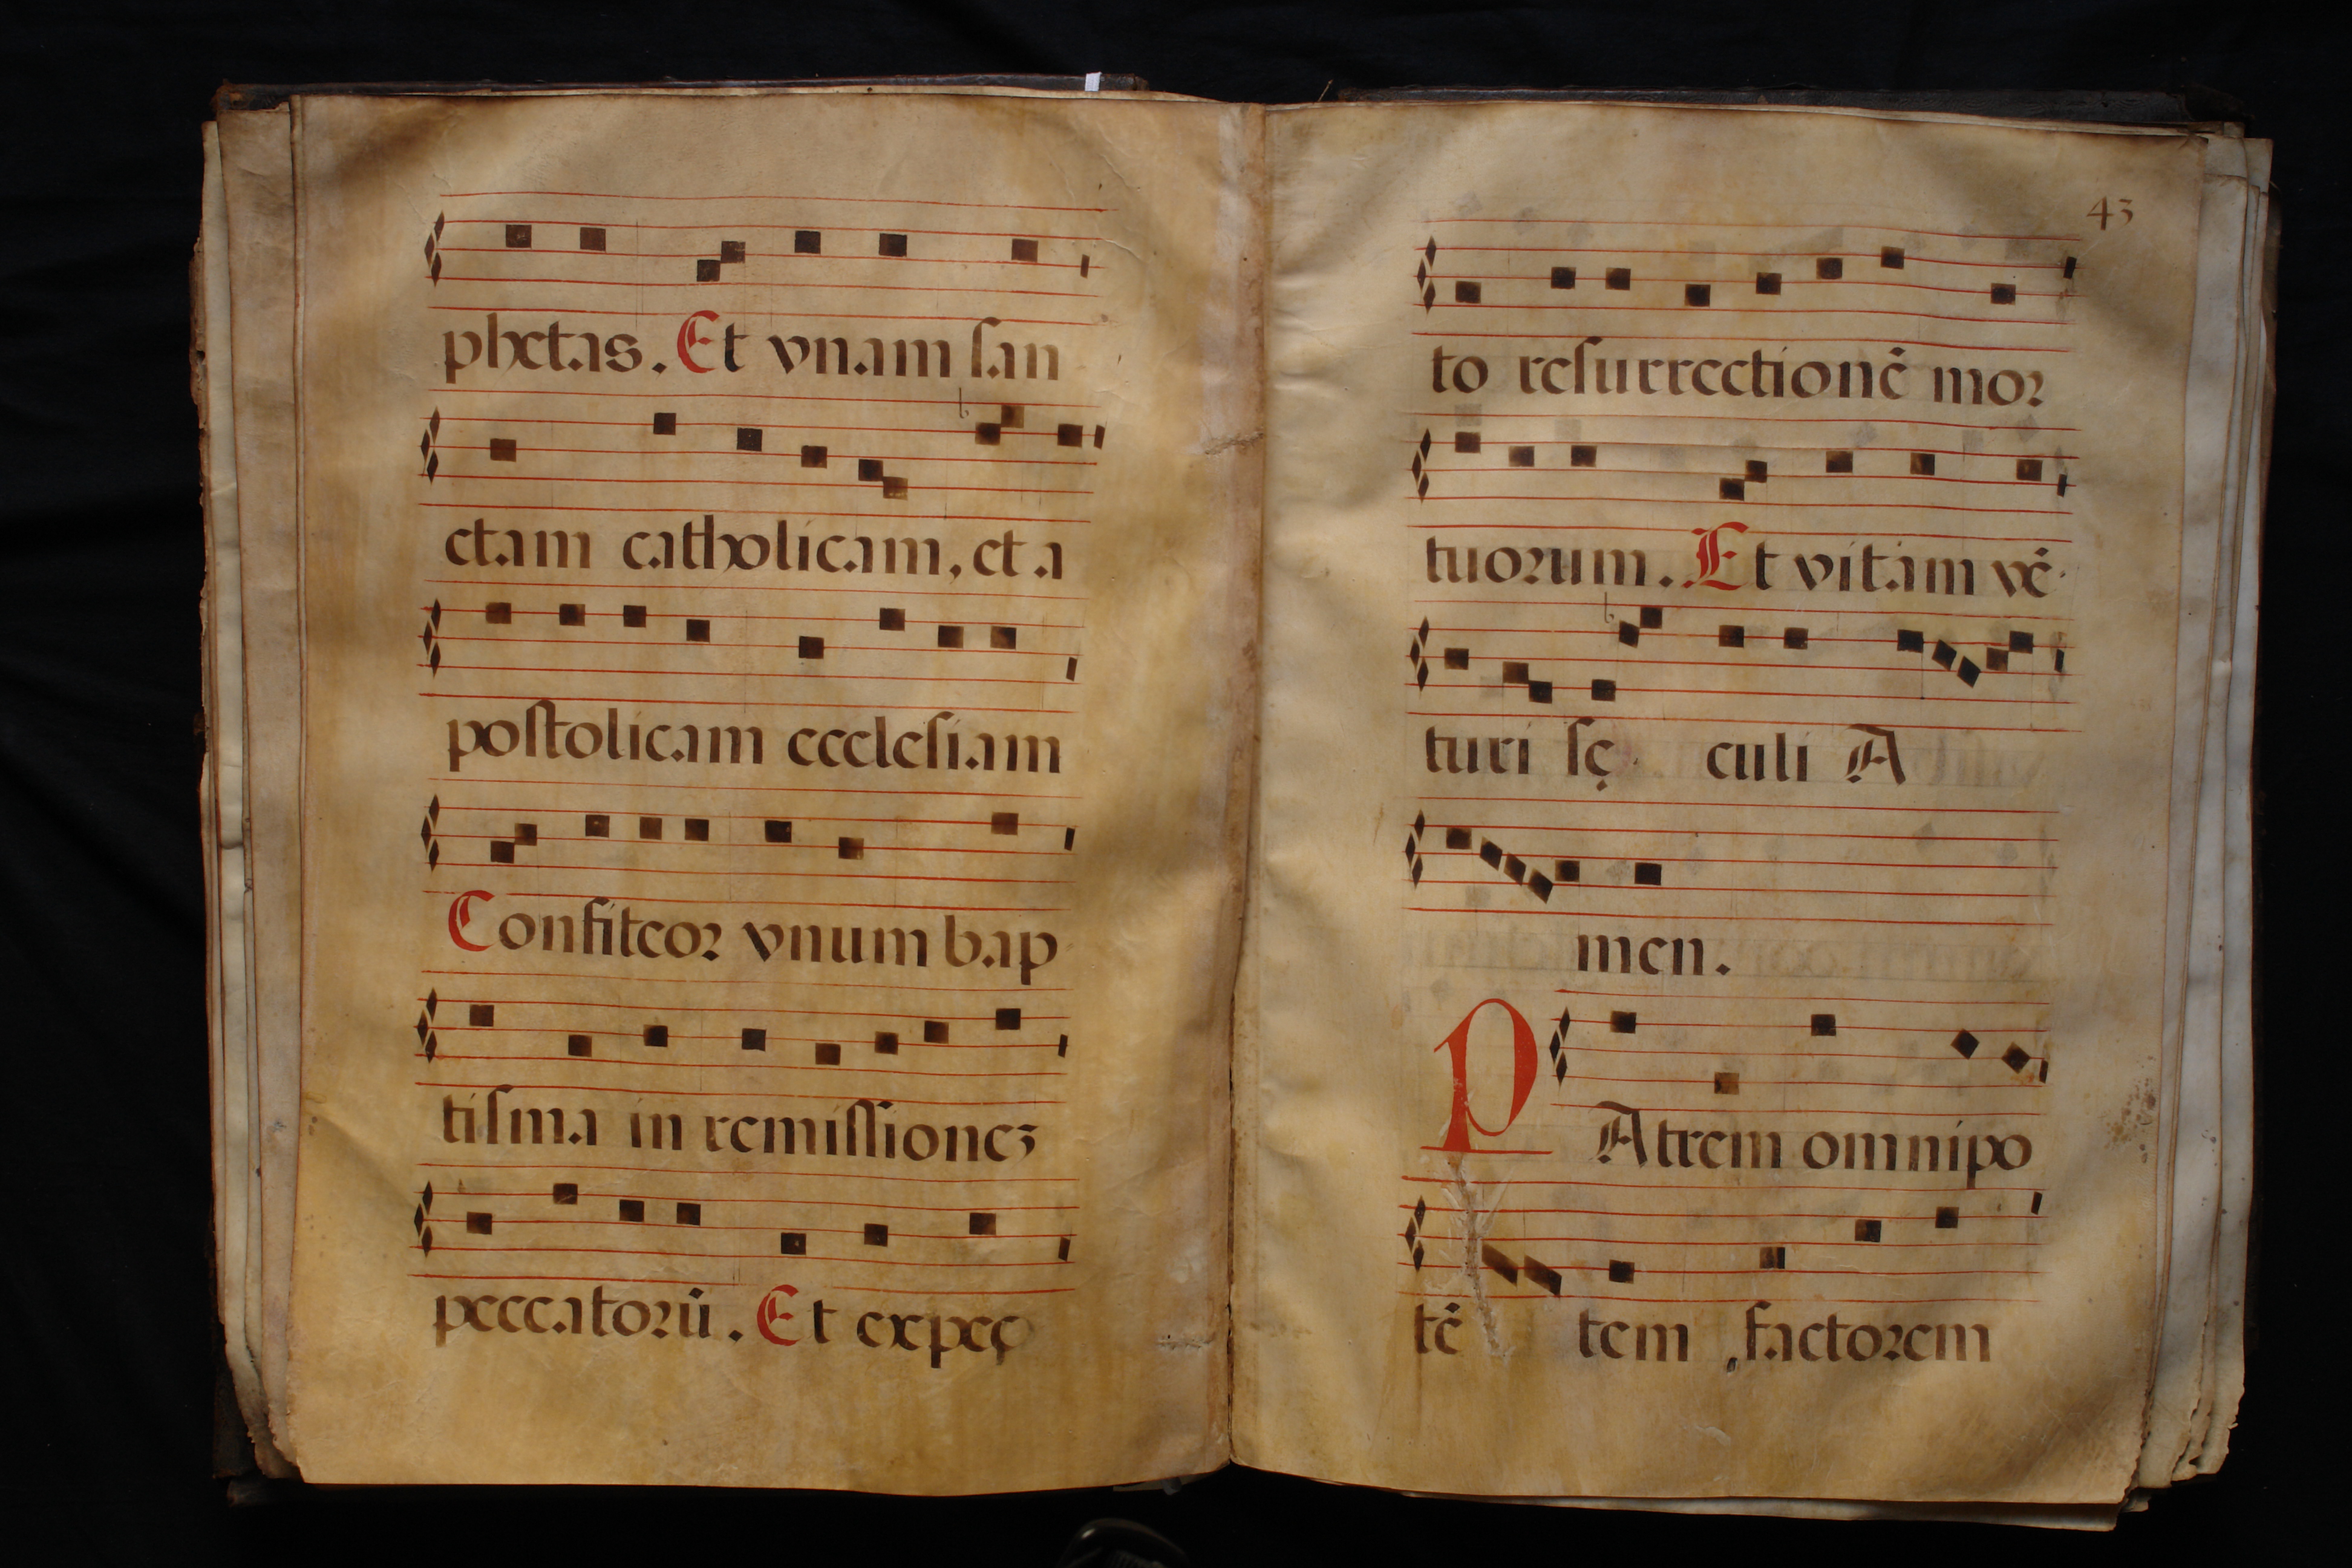 phetas. Et vnam ſan
ctam catholicam, et a
poſtolicam eccleſiam
Confiteor vnum bap
tiſma in remiſſioneꝫ
peccatorū. Et expeç
43
to reſurrectionē mor
tuorum. Et vitam vē
turi ſę culi A
men.
PAtrem omnipo
tē tem, factorem